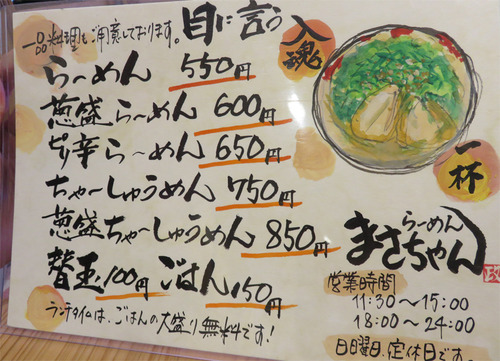 一品料理もご用意しております。
目に言う
入魂
らーめん 550円
葱盛らーめん 600円
ピリ辛らーめん 650円
ちゃーしゅうめん 750円
葱盛ちゃーしゅうめん 850円
替玉100円 ごはん150円
ランチタイムは、ごはんの大盛り無料です!
一杯
らーめん
まさちゃん
営業時間
11:30〜15:00
18:00〜24:00
日曜日、定休日です。